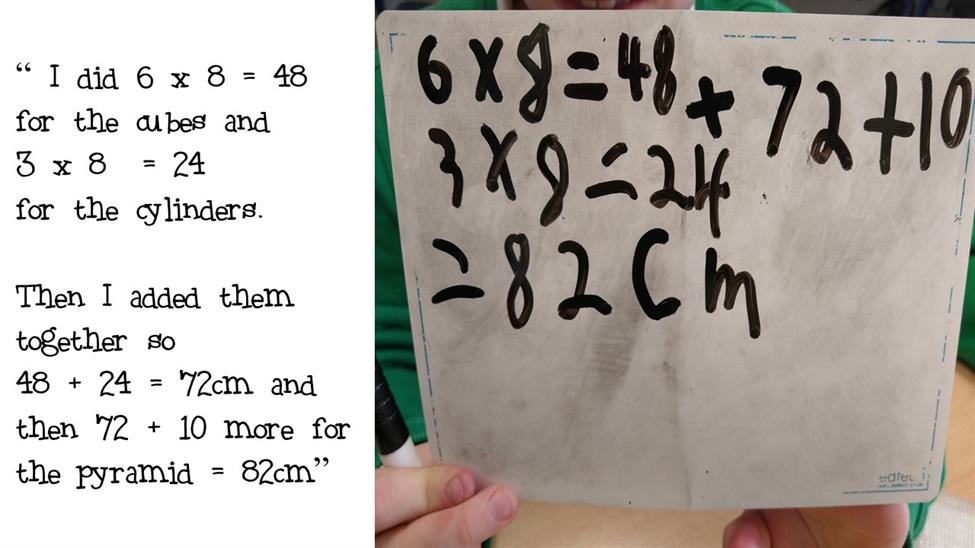 “ I did 6 x 8 = 48
for the cubes and
3 x 8 = 24
for the cylinders.
Then I added them
together so
48 + 24 = 72cm and
then 72 + 10 more for
the pyramid = 82cm”
6 x 8 = 48 + 72 + 10
3 x 8 = 24
= 82 cm